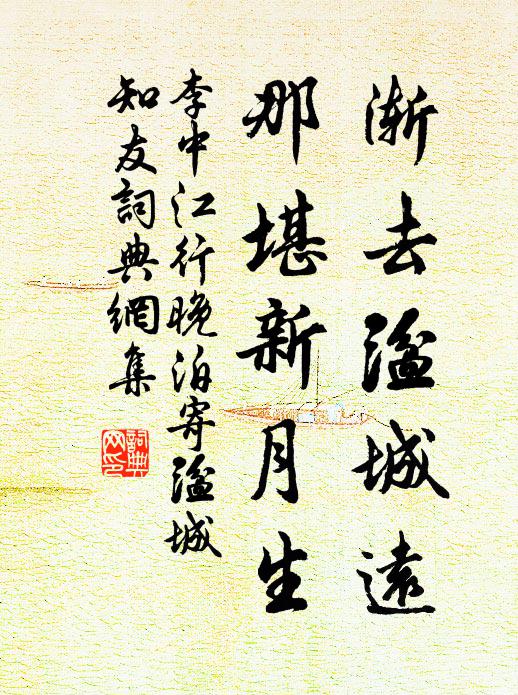 漸去湓城遠
那堪新月生
李中江行晚泊寄湓城
知友詞典網集
詞典
网印